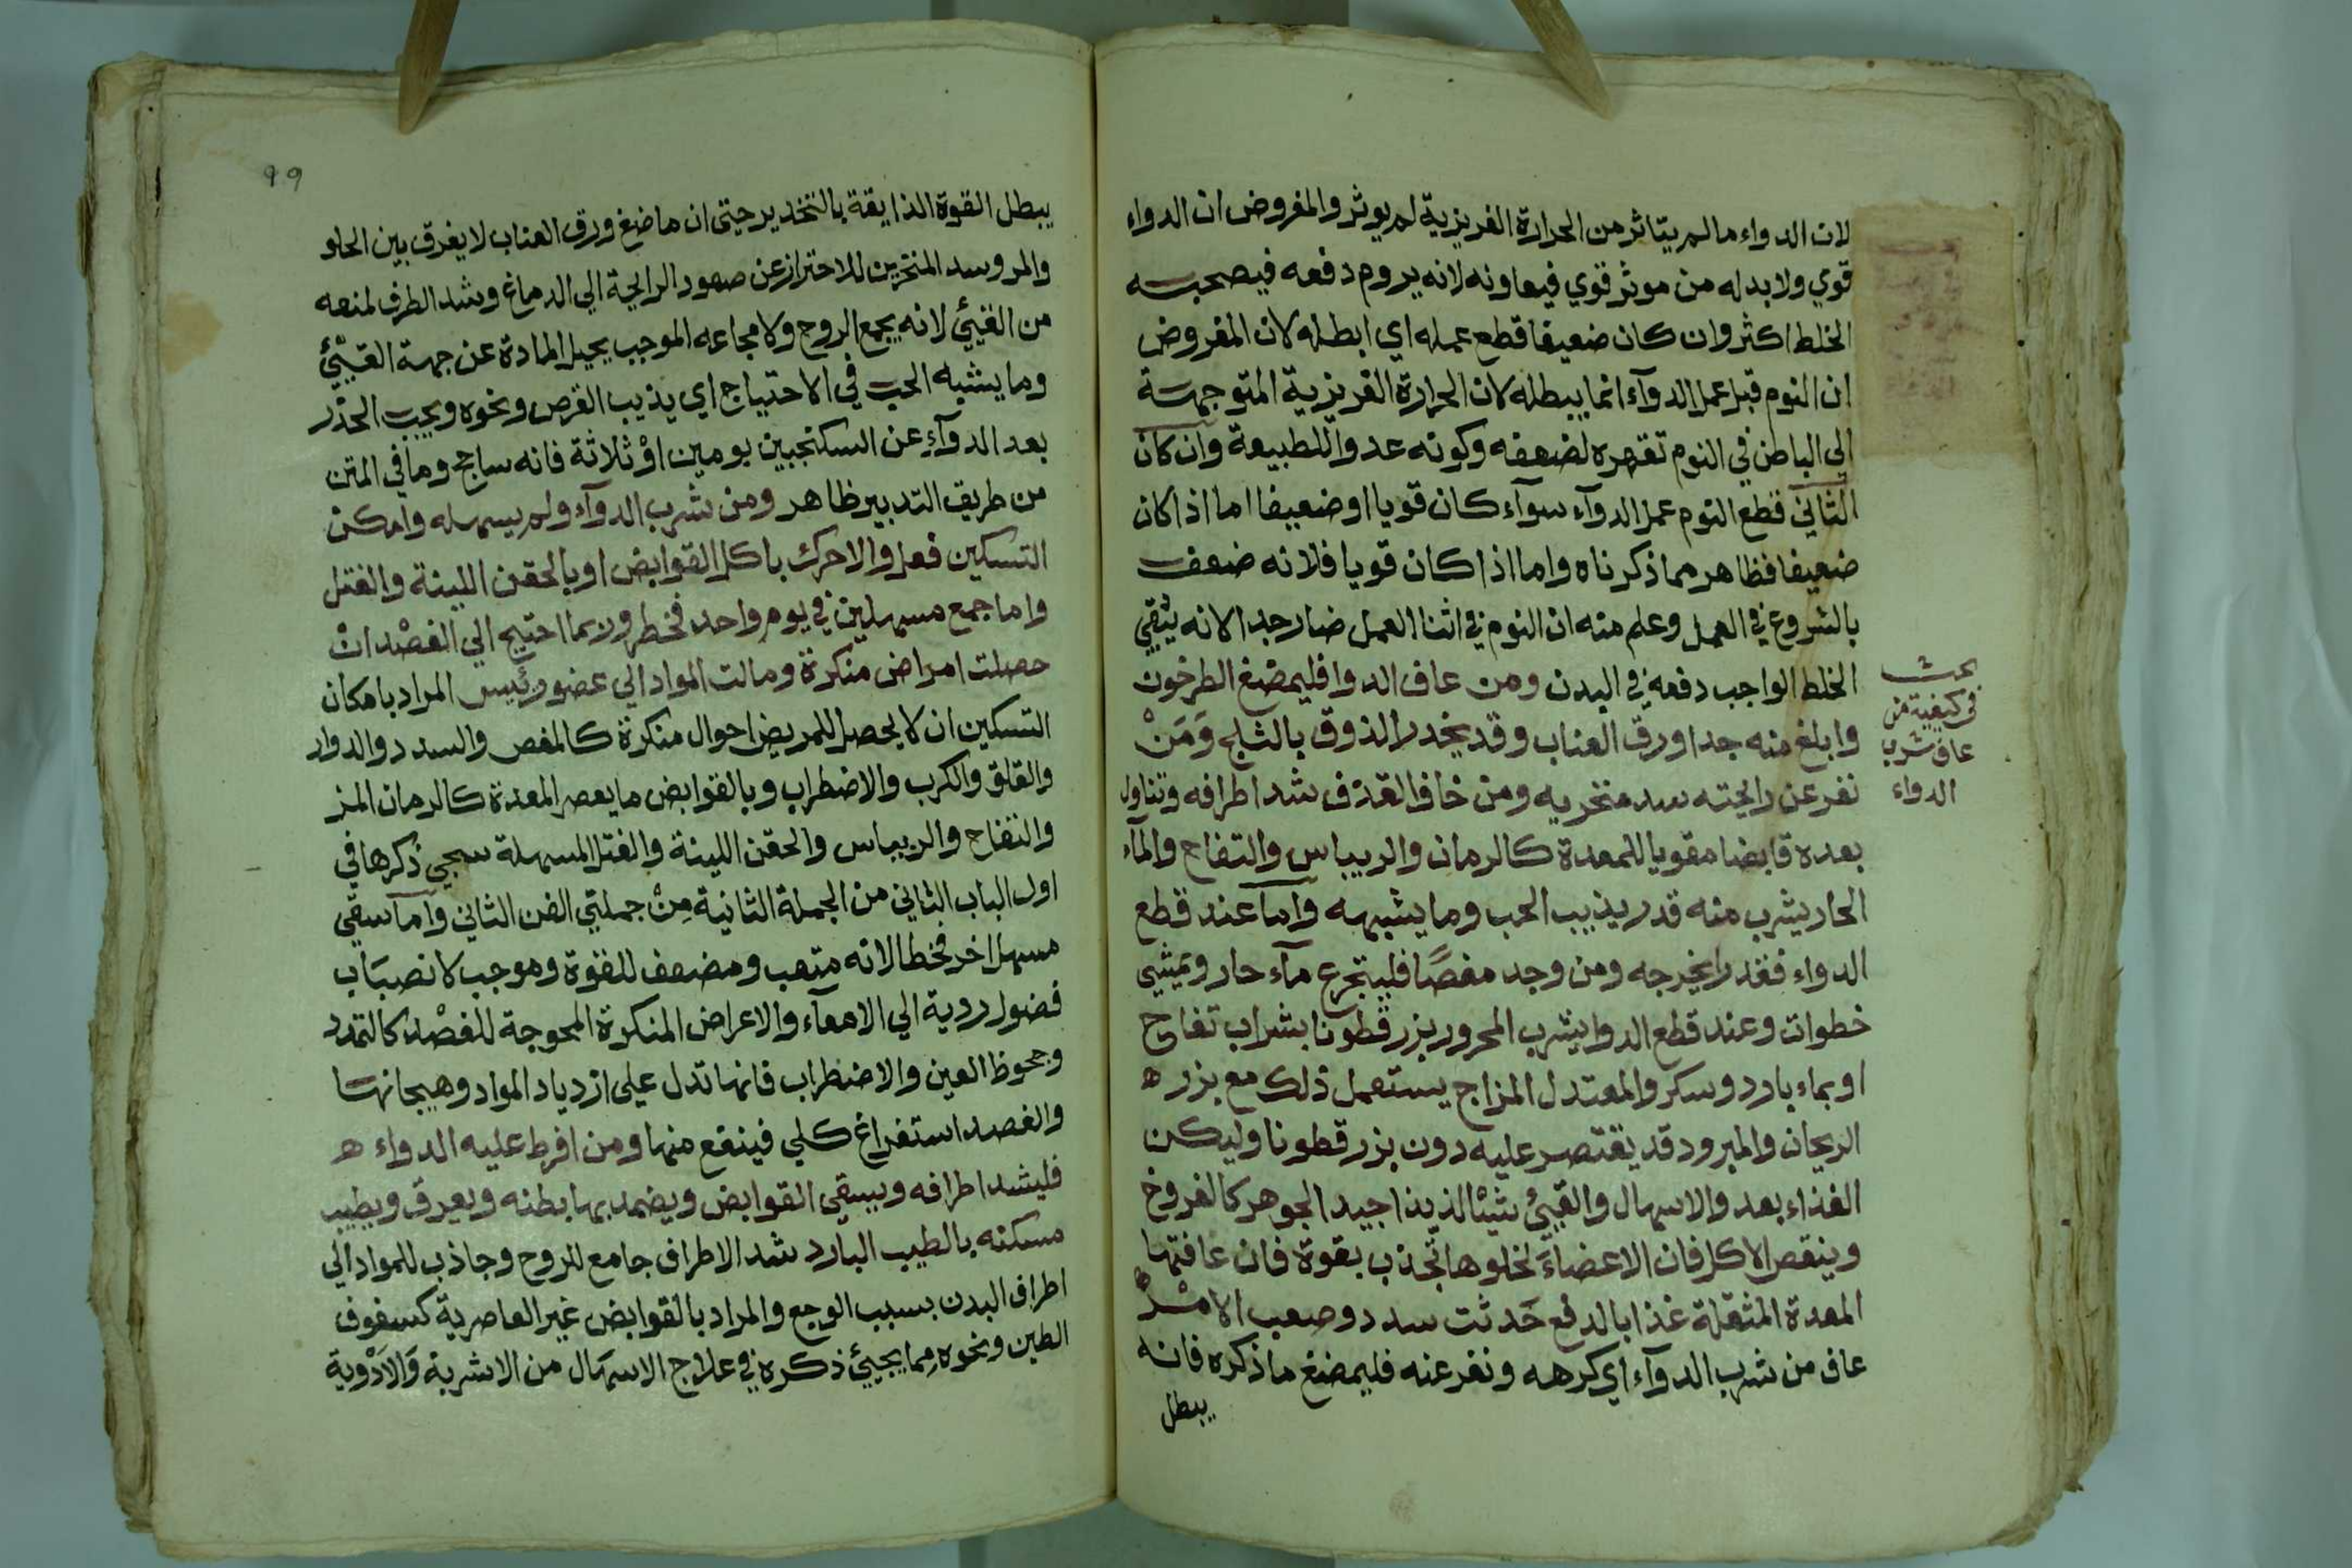 لان الدواء ما لم يتاثر من الحرارة الغريزية لم يوثر والمفروض ان الدواء
قوي ولا بد له من موثر قوي فيعاونه لانه يروم دفعه فيصحبه
الخلط اكثر وان كان ضعيفا قطع عمله اي ابطله لان المفروض
ان النوم قبل عمل الدوآء انما يبطله لان الحرارة الغريزية المتوجهة
الي الباطن في النوم تقهره لضعفه وكونه عدوا للطبيعة وان كان
الثاني قطع النوم عمل الدوآء سوآء كان قويا او ضعيفا اما اذا كان
ضعيفا فظاهر مما ذكرناه واما اذا كان قويا فلانه ضعف
بالشروع في العمل وعلم منه ان النوم في اثنا العمل ضار جدا لانه يُبقي
الخلط الواجب دفعه في البدن ومن عاف الدوا فليمضغ الطرخون
وابلغ منه جدا ورق العناب وقد يخدر الذوق بالثلج وَمَنْ
نفر عن رايحته سد منخريه ومن خاف القذف شد اطرافه وتناول
بعده قابضا مقويا للمعدة كالرمان والريباس والتفاح والمآء
الحار يشرب منه قدر يذيب الحب وما يشبهه واما عند قطع
الدواء فقدر ايخرجه ومن وجد مغصًا فليتجرع مآء حار ويمشي
خطوات وعند قطع الدوا يشرب المحرور بزر قطونا بشراب تفاح
او بماء بارد وسكر والمعتدل المزاج يستعمل ذلك مع بزر ه
الريحان والمبرود قد يقتصر عليه دون بزر قطونا وليكن
الغذاء بعد والاسهال والقيئ شيئا لذيذا جيد الجوهر كالفروخ
وينقص الاكل فان الاعضاءَ لخلوها تجذب بقوة فان عافتها
المعدة المثقلة غذا بالدفع حَدثت سدد وصعب الامْرُ
عاف من شرب الدوآء اي كرهه ونفر عنه فليمضغ ما ذكره فانه
يبطل
بحث
في كيفية من
عاف شرب
الدواء
99
يبطل القوة الذايقة بالتخدير حيتي ان ما ضغ ورق العناب لا يفرق بين الحلو
والمر وسد المنخرين للاحتراز عن صعود الرايحة الي الدماغ وشد الطرف لمنعه
من القيئ لانه يجمع الروح ولا مجاعه الموجب يحيل المادة عن جهة القيئ
وما يشبه الحب في الاحتياج اي يذيب القرص ونحوه ويجب الحذر
بعد الدوآءِ عن السكنجبين يومين اوْ ثلاثة فانه ساحج وما في المتن
من طريق التدبير ظاهر ومن شرب الدوآء ولم يسهله وامكن
التسكين فعل والا حرك باكل القوابض او بالحقن اللينة والفتل
واما جمع مسهلين في يوم واحد فخطر وربما احتيج الي الفصْد انْ
حصلت امراض منكرة ومالت المواد الي عضو رئيس المراد بامكان
التسكين ان لا يحصل للمريض احوال منكرة كالمغص والسدد والدوار
والقلق والكرب والاضطراب وبالقوابض ما يعصر المعدة كالرمان المز
والتفاح والريباس والحقن اللينة والفتل المسهلة سيجي ذكرها في
اول الباب الثاني من الجملة الثانية مِنْ جملتي الفن الثاني وآما سقي
مسهل اخر فخطا لانه متعب ومضعف للقوة وموجب لانصبَاب
فضول ردية الي الامعآء والاعراض المنكرة المحوجة للفصْد كالتمدد
وجحوظ العين والاضطراب فانها تدل علي ازدياد المواد وهيجانها
والفصد استفراغ كلي فينقع منها ومن افرط عليه الدواء ه
فليشد اطرافه ويسقي القوابض ويضمد بها بطنه ويعرق ويطيب
مسكنه بالطيب البارد شد الاطراف جامع للروح وجاذب للمواد الي
اطراف البدن بسبب الوجع والمراد بالقوابض غير العاصرية كسفوف
الطين ونحوه مِما يجيئ ذكره في علاج الاسهَال من الاشربة وَالاَدْوية